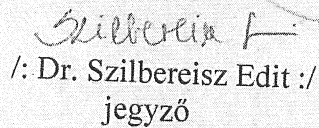 Szilbereisz
/: Dr. Szilbereisz Edit :/
jegyző